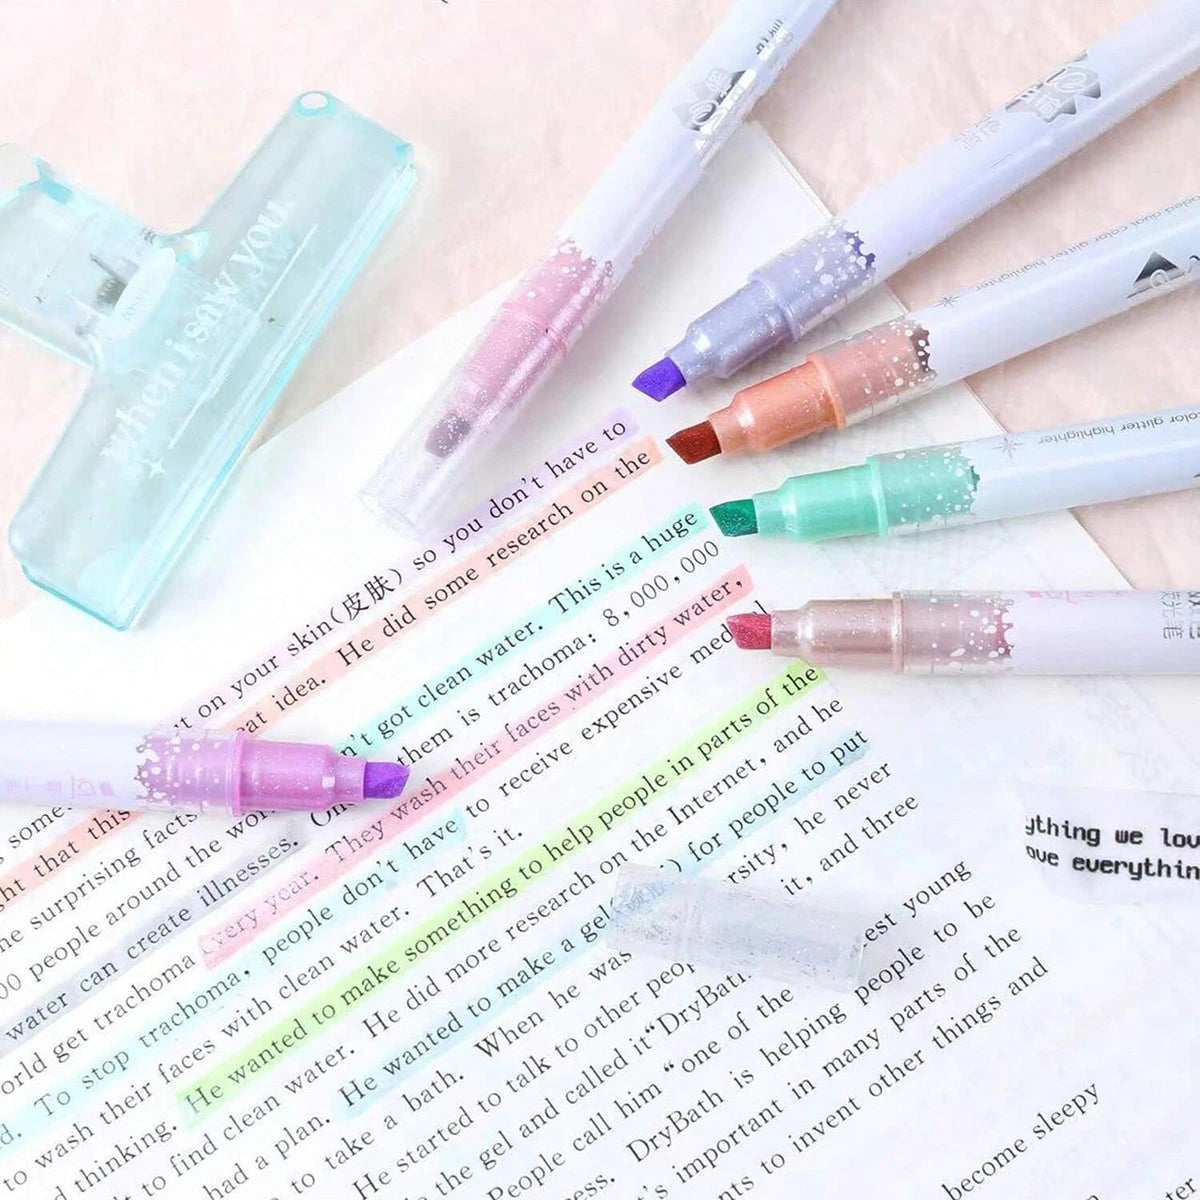 when i saw you
ded dual color glitter highlighter
color glitter highlighter
ything we lov
ove everythin
't on your skin(皮肤) so you don't have to
eat idea. He did some research on the
n't got clean water. This is a huge
them is trachoma: 8,000,000
They wash their faces with dirty water,
to receive expensive med l
every year.
some
ght that this
surprising facts
00 people around the wor
water can create illnesses. On
orld get trachoma
To stop trachoma, people don't have
to wash their faces with clean water. That's it.
thinking. He wanted to make something to help people in parts of the
to find clean water. He did more research on the Internet, and he
had a plan. He wanted to make a gel ) for people to put
to take a bath. When he was rsity, he never
He started to talk to other peop it, and three
the gel and called it "DryBath.
People call him "one of the est young
ess. DryBath is helping people to be
t's important in many parts of the
nts to invent other things and
become sleepy